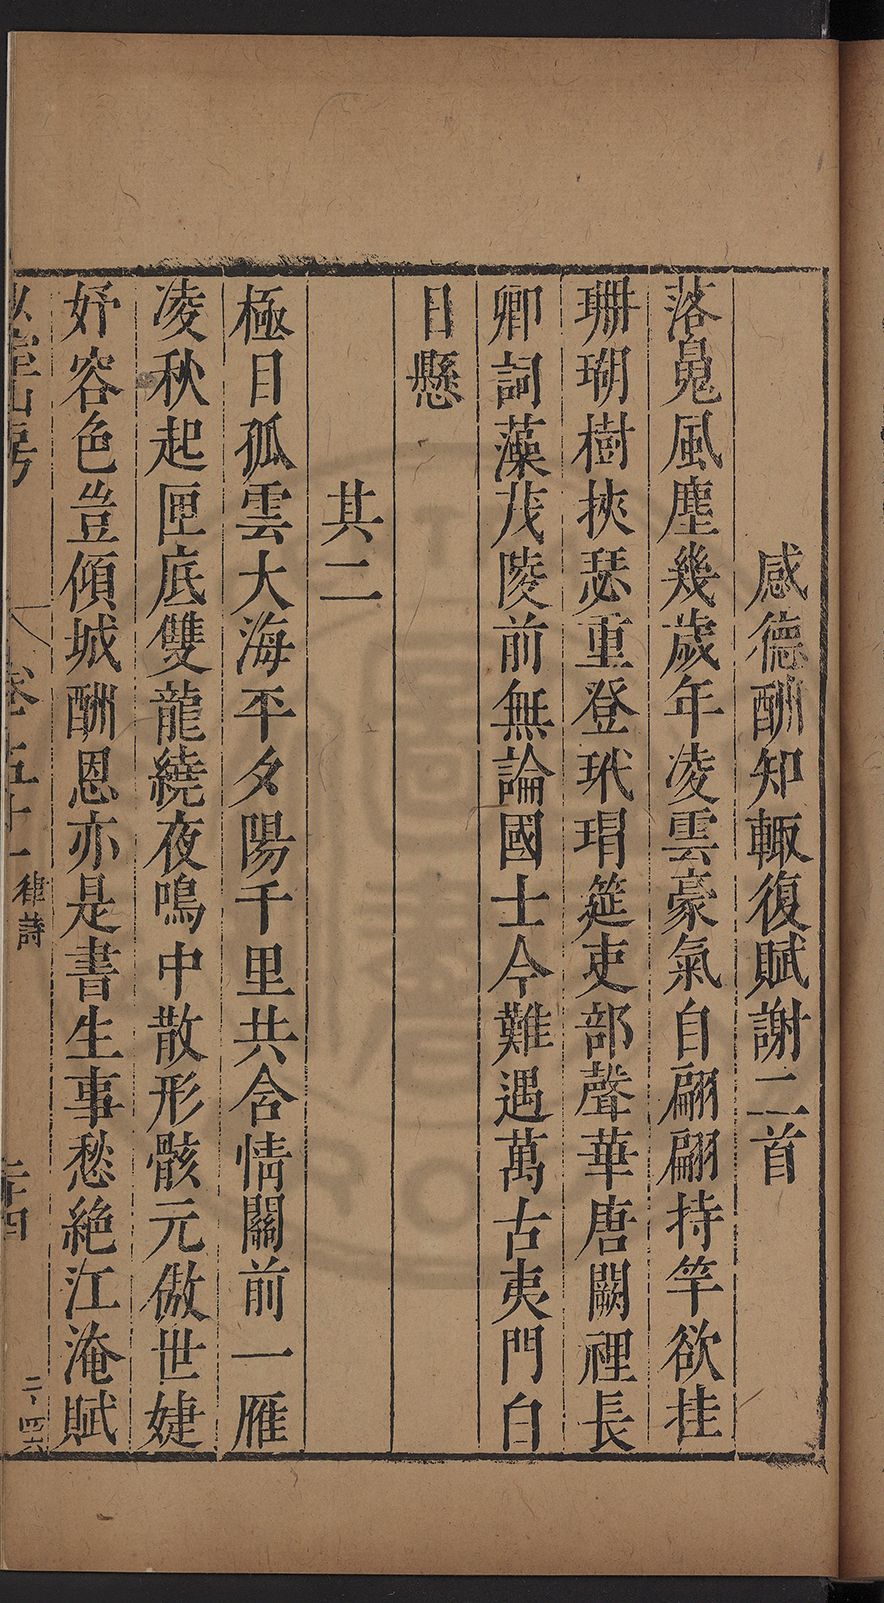 感德酬知輙復賦謝二首
落鳬風塵幾歲年凌雲豪氣自翩翩持竿欲挂
珊瑚樹挾瑟重登玳瑁筵吏部聲華唐闕裡長
卿詞藻茂陵前無論國士今難遇萬古夷門白
日懸
其二
極目孤雲大海平夕陽千里共含情關前一雁
凌秋起匣底雙龍繞夜鳴中散形骸元傲世婕
妤容色豈傾城酬恩亦是書生事愁絶江淹賦
山房
卷五十一 律詩